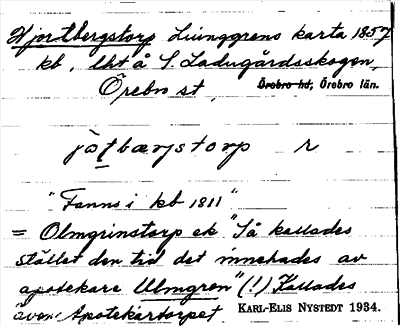 Hjortbergstorp Ljunggrens karta 1857
kb, lht å S. Ladugårdsskogen,
Örebro st, Örebro hd, Örebro län.
jo̱tbærjstorp r
"Fanns i kb 1811"
= Olmgrinstorp ek. "Så kallades
stället den tid det innehades av
apotekare Ulmgren" (!) Kallades
även Apotekartorpet. KARL-ELIS NYSTEDT 1934.